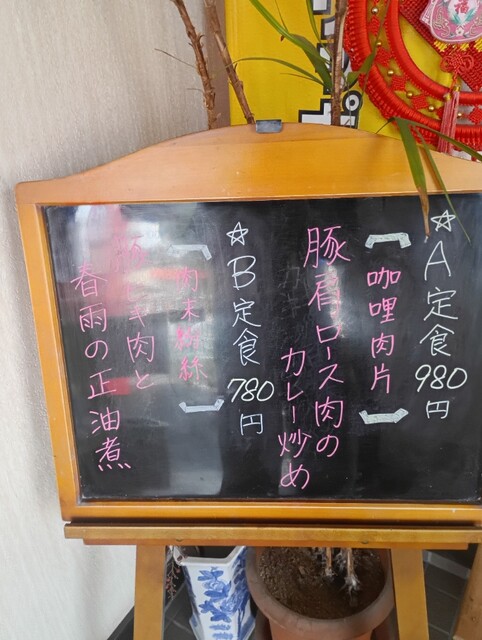 ☆A定食980円
【咖哩肉片】
豚肩ロース肉の
カレー炒め
☆B定食780円
【肉末粉絲】
豚ひき肉と
春雨の正油煮
福